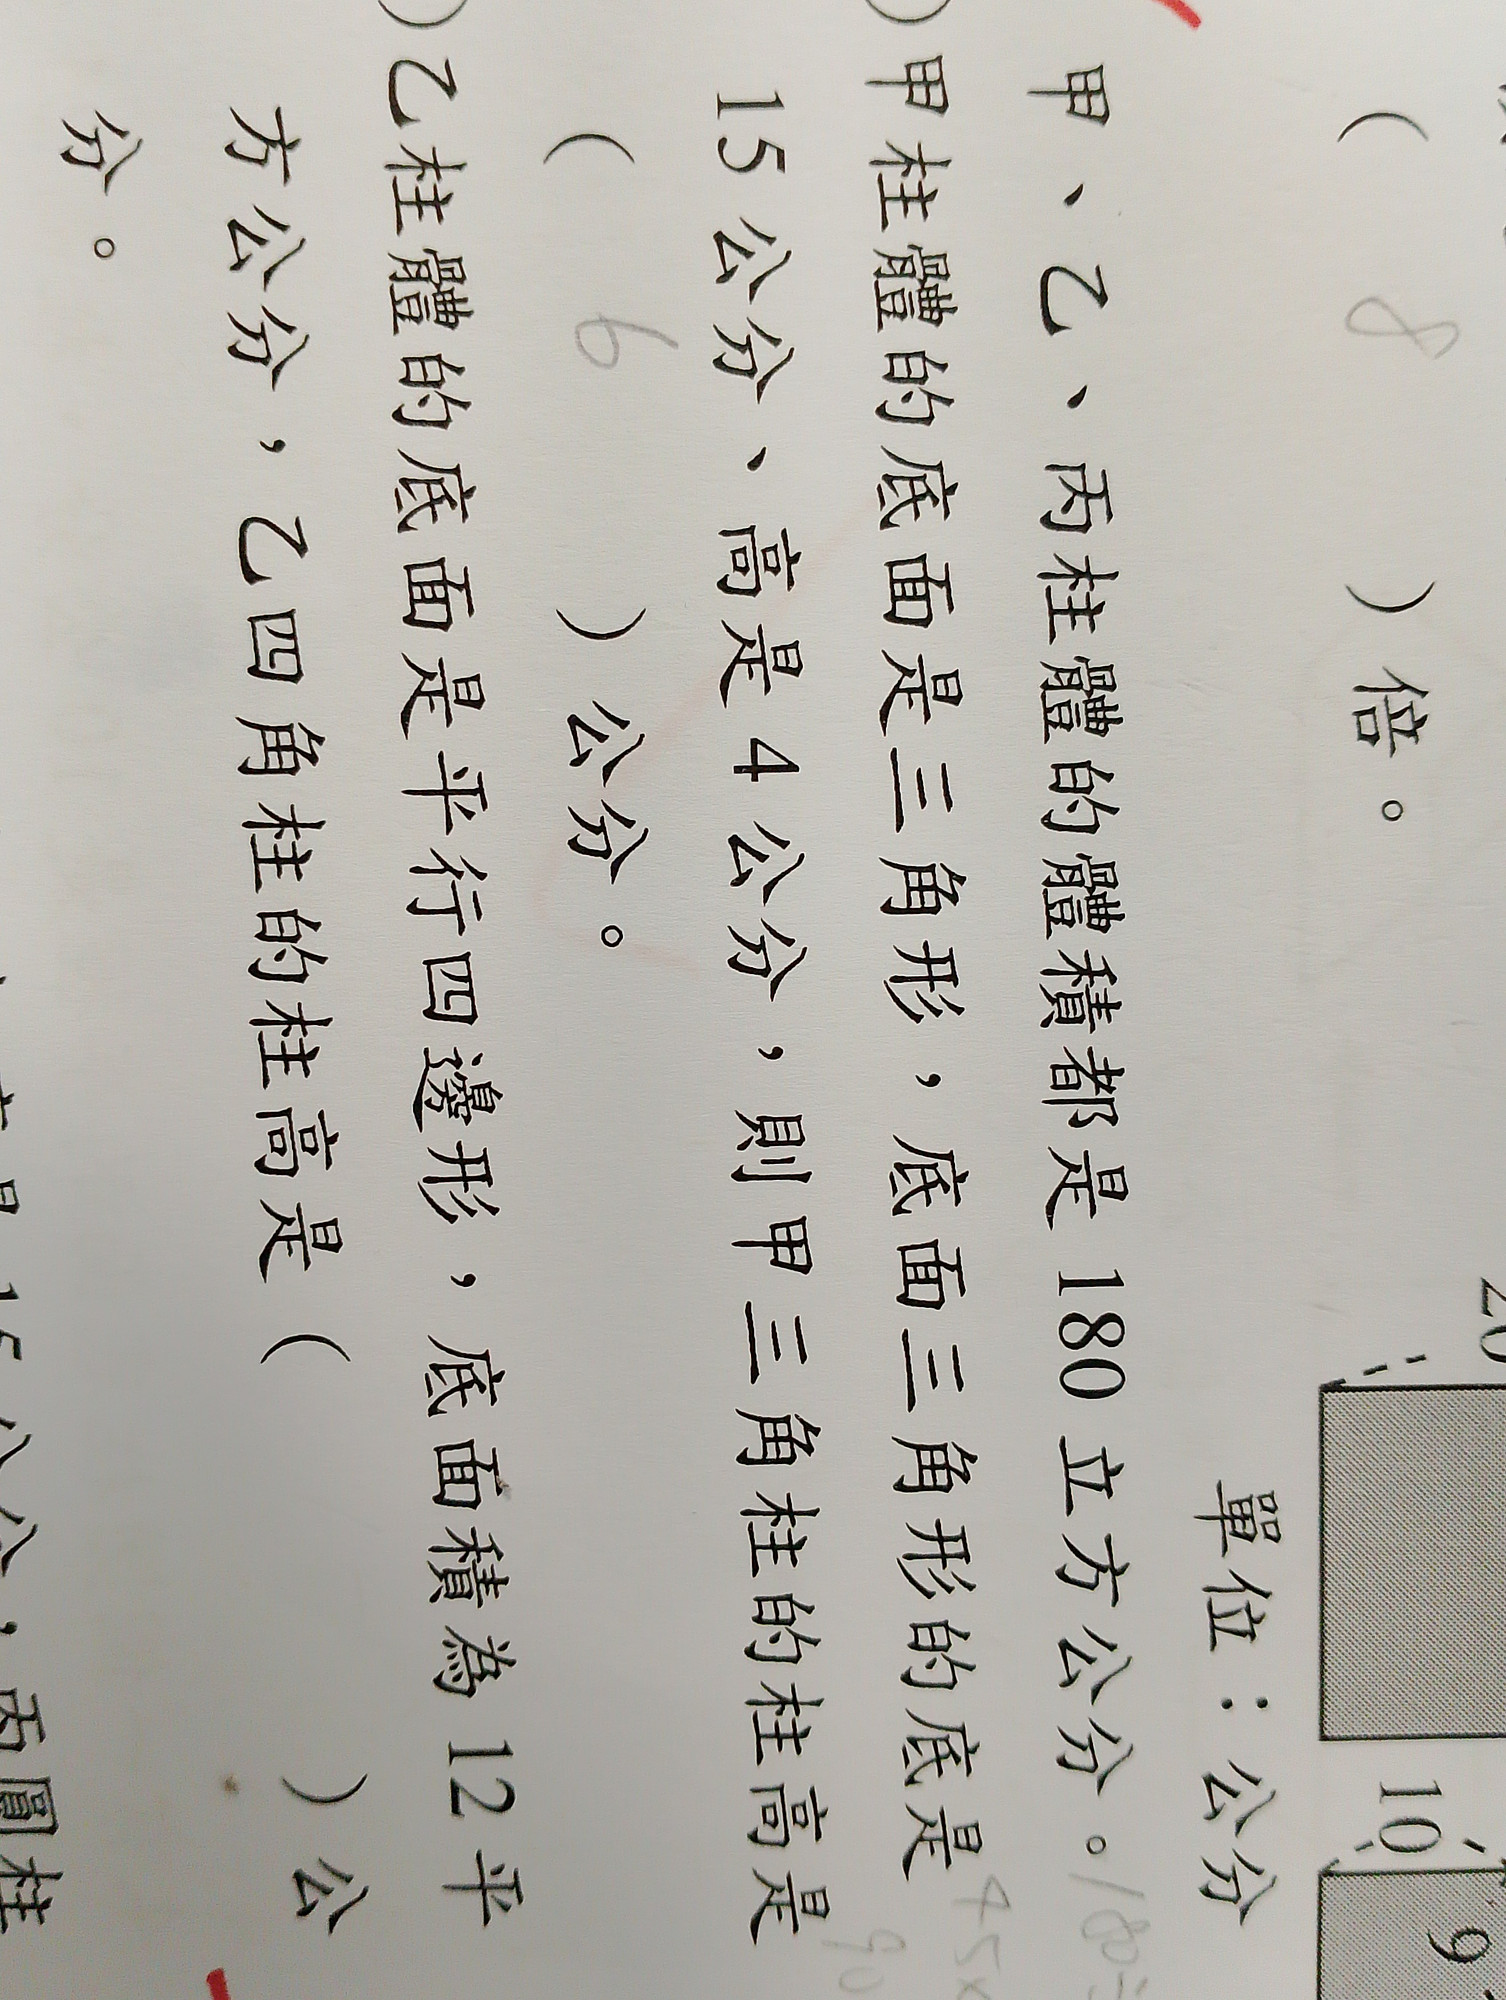 ( 8 ) 倍。
20
10
9
單位：公分
甲、乙、丙柱體的體積都是 180 立方公分。
180÷
45×
90
)甲柱體的底面是三角形，底面三角形的底是
15 公分、高是 4 公分，則甲三角柱的柱高是
( 6 ) 公分。
)乙柱體的底面是平行四邊形，底面積為 12 平
方公分，乙四角柱的柱高是 ( ) 公
分。
是 15 公分，丙圓柱